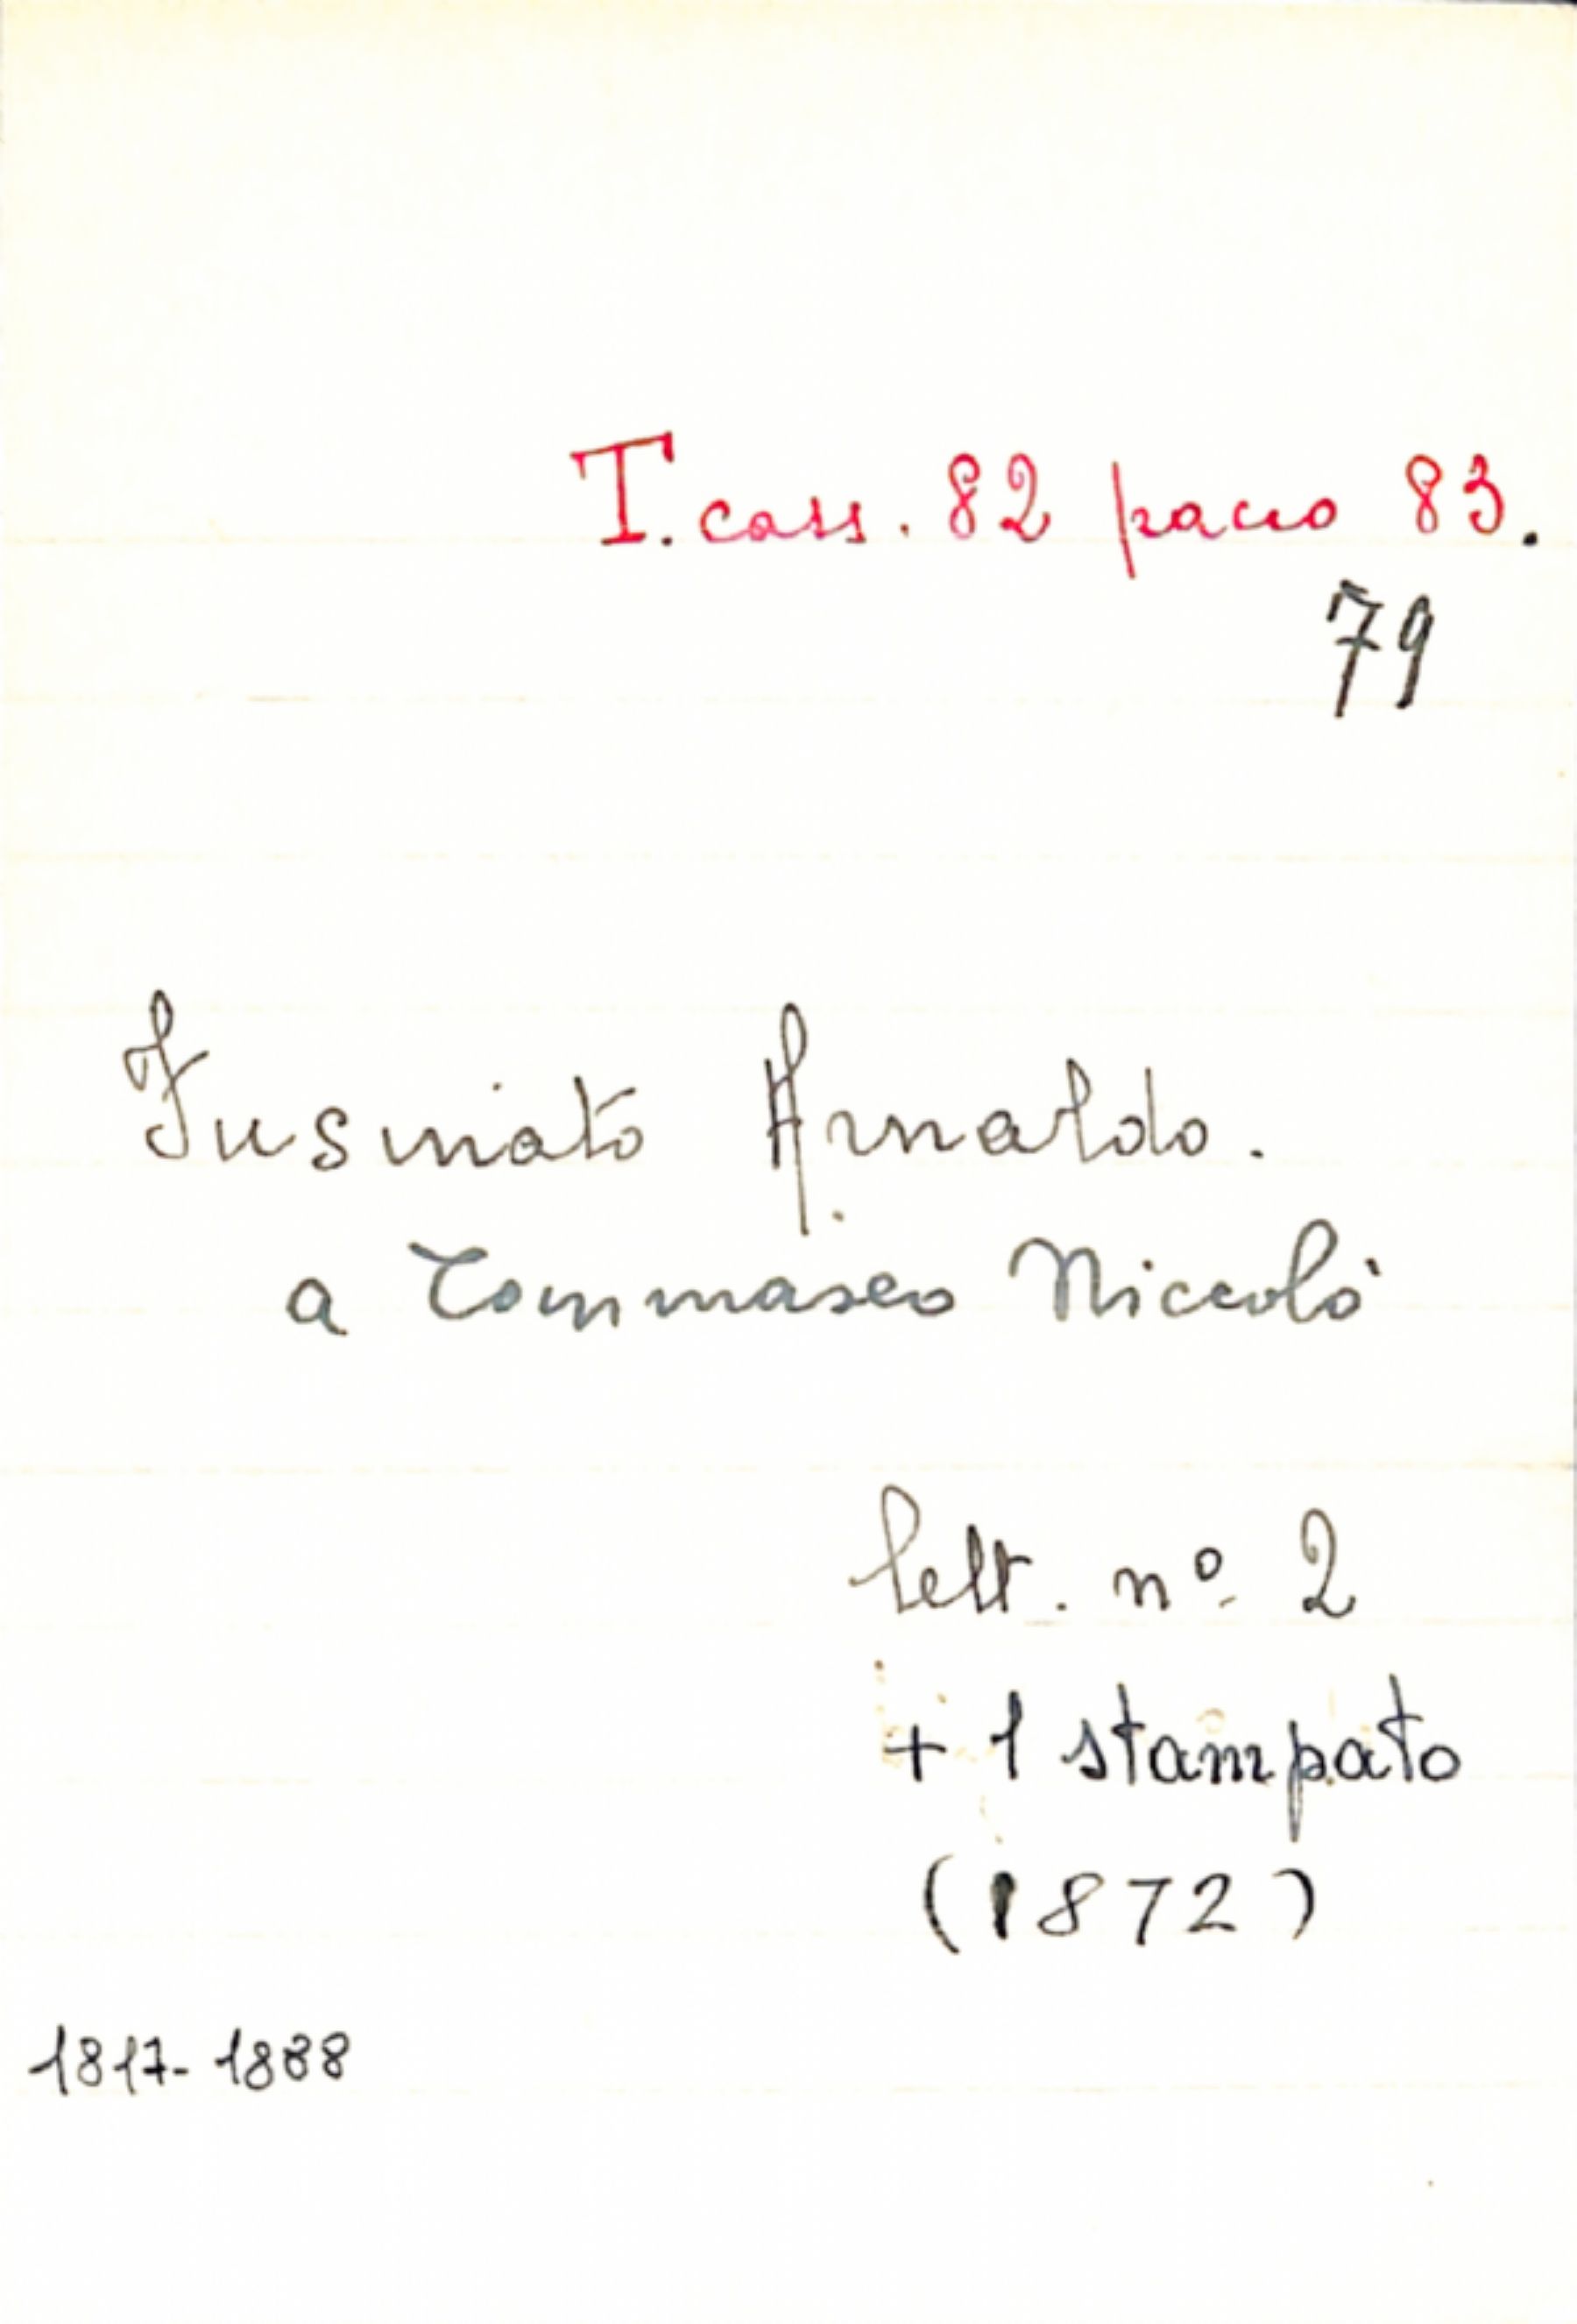 T. cass. 82 pacco 83.
79
Fusinato Arnaldo.
a Tommaseo Niccolò
lett. nº 2
+ 1 stampato
(1872)
1817-1888